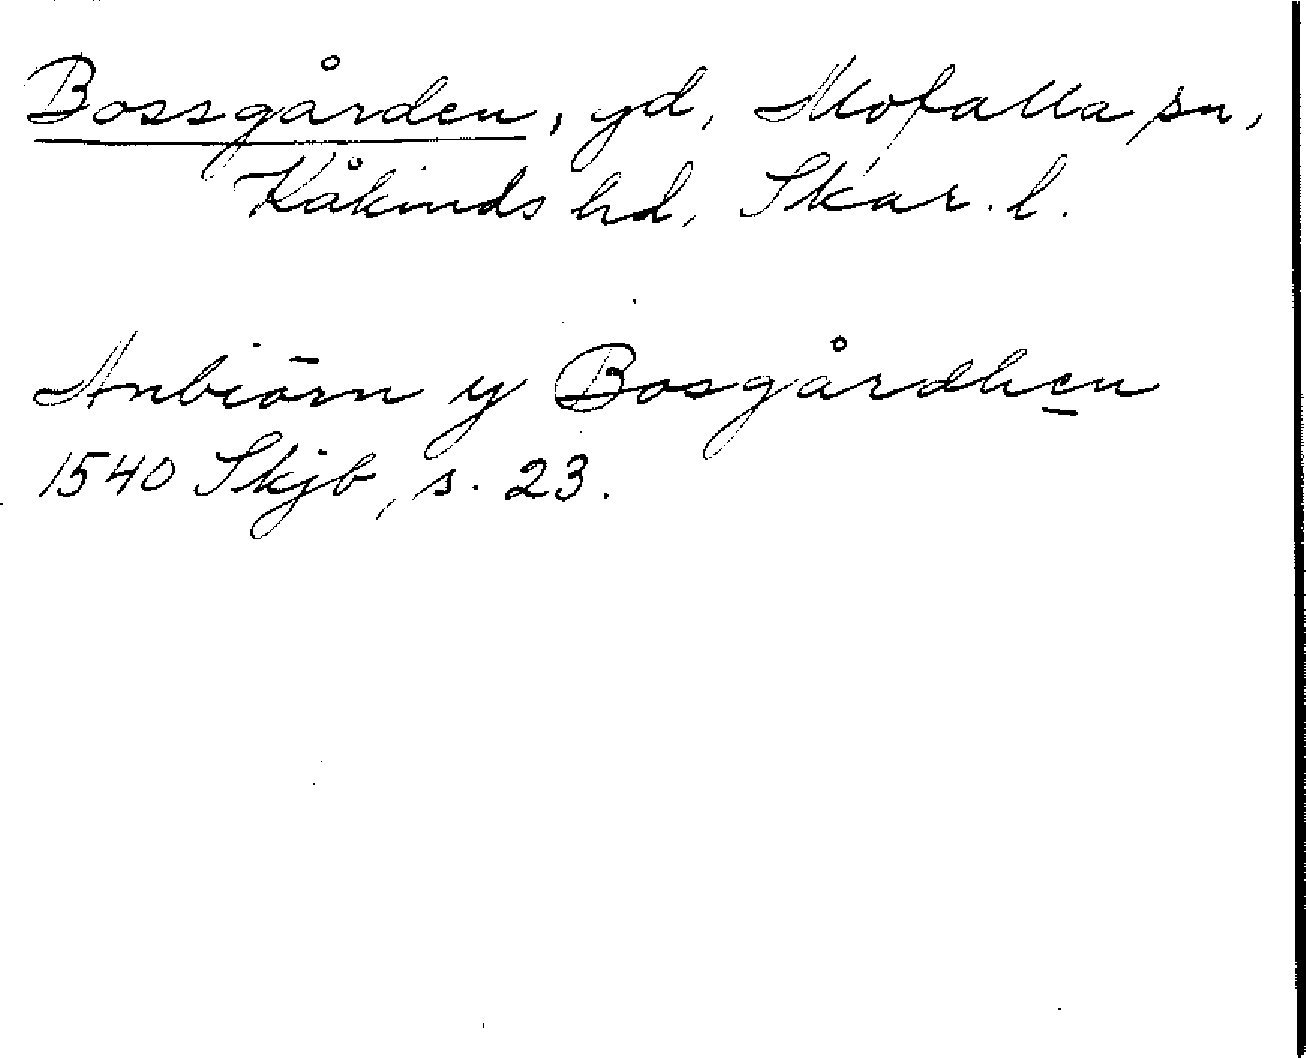 Bossgården, gd, Mofalla sn,
Kåkinds hd, Skar. l.
Anbiörn y Bosgårdhen
1540 Skjb, s. 23.